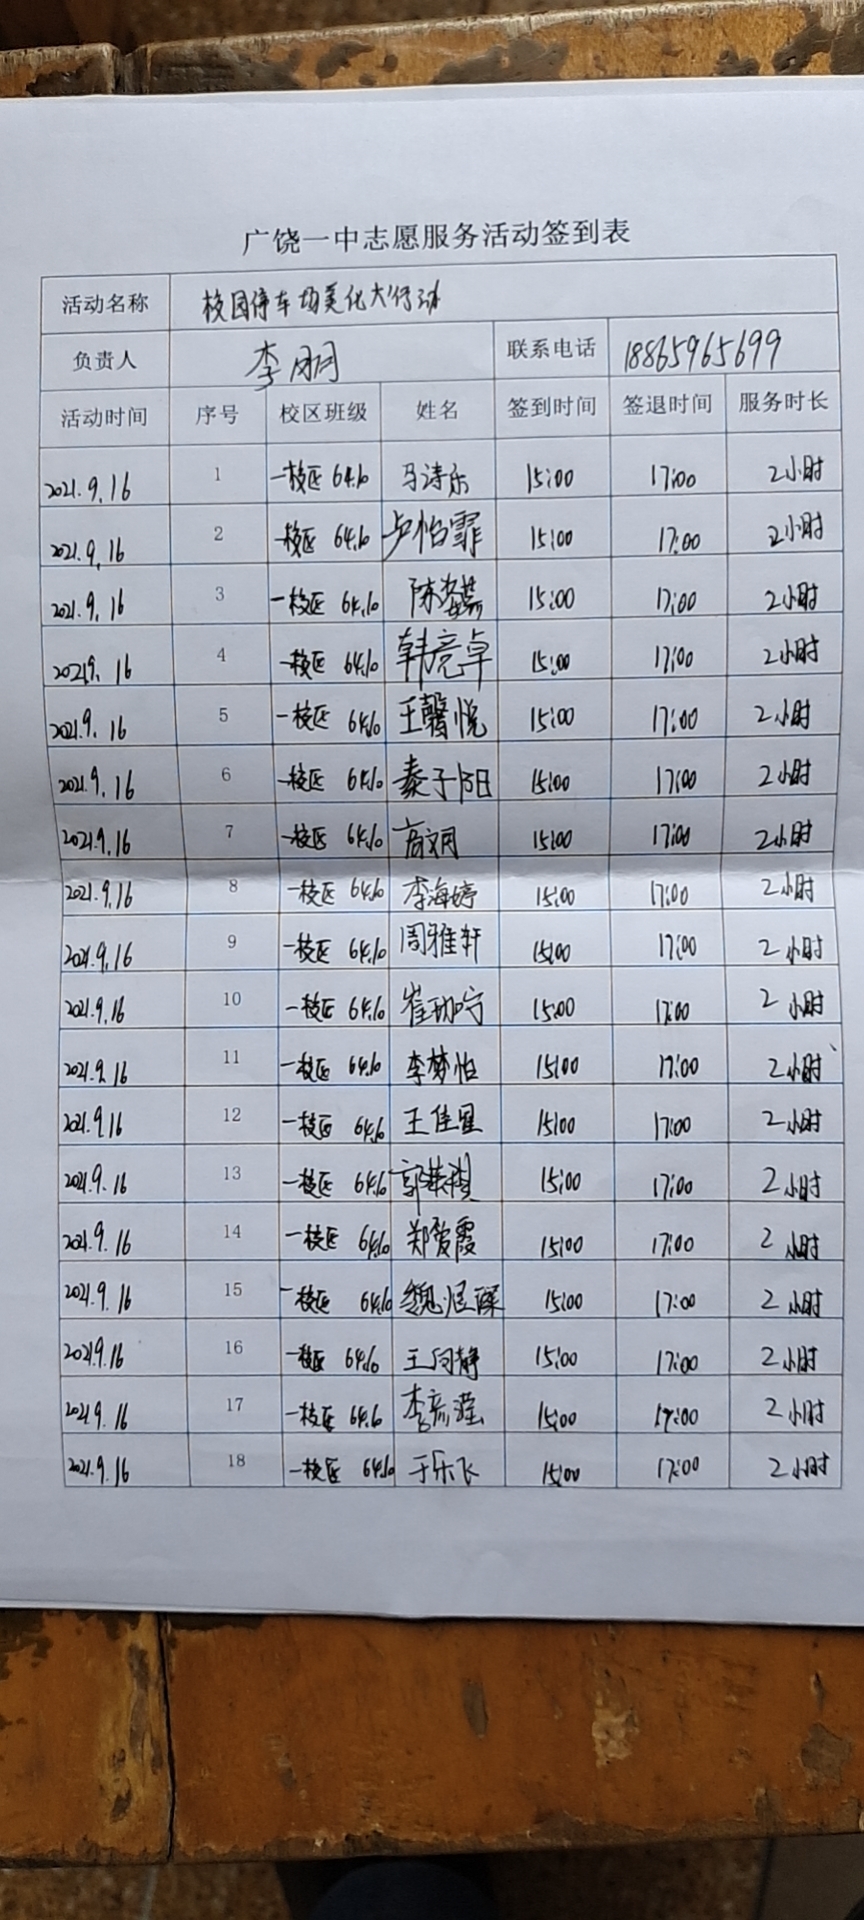 广饶一中志愿服务活动签到表
活动名称 校园停车场美化大行动
负责人 李明 联系电话 18865965699
活动时间 序号 校区班级 姓名 签到时间 签退时间 服务时长
2021.9.16 1 一校区 64.10 马涛乐 15:00 17:00 2小时
2021.9.16 2 一校区 64.10 卢怡霏 15:00 17:00 2小时
2021.9.16 3 一校区 64.10 15:00 17:00 2小时
2021.9.16 4 一校区 64.10 韩竞卓 15:00 17:00 2小时
2021.9.16 5 一校区 64.10 王馨悦 15:00 17:00 2小时
2021.9.16 6 一校区 64.10 秦子阳 15:00 17:00 2小时
2021.9.16 7 一校区 64.10 15:00 17:00 2小时
2021.9.16 8 一校区 64.10 李海婷 15:00 17:00 2小时
2021.9.16 9 一校区 64.10 周雅轩 15:00 17:00 2小时
2021.9.16 10 一校区 64.10 15:00 17:00 2小时
2021.9.16 11 一校区 64.10 李梦怡 15:00 17:00 2小时
2021.9.16 12 一校区 64.10 王佳星 15:00 17:00 2小时
2021.9.16 13 一校区 64.10 15:00 17:00 2小时
2021.9.16 14 一校区 64.10 郑爱霞 15:00 17:00 2小时
2021.9.16 15 一校区 64.10 15:00 17:00 2小时
2021.9.16 16 一校区 64.10 王向静 15:00 17:00 2小时
2021.9.16 17 一校区 64.10 李彦滢 15:00 17:00 2小时
2021.9.16 18 一校区 64.10 于乐飞 15:00 17:00 2小时